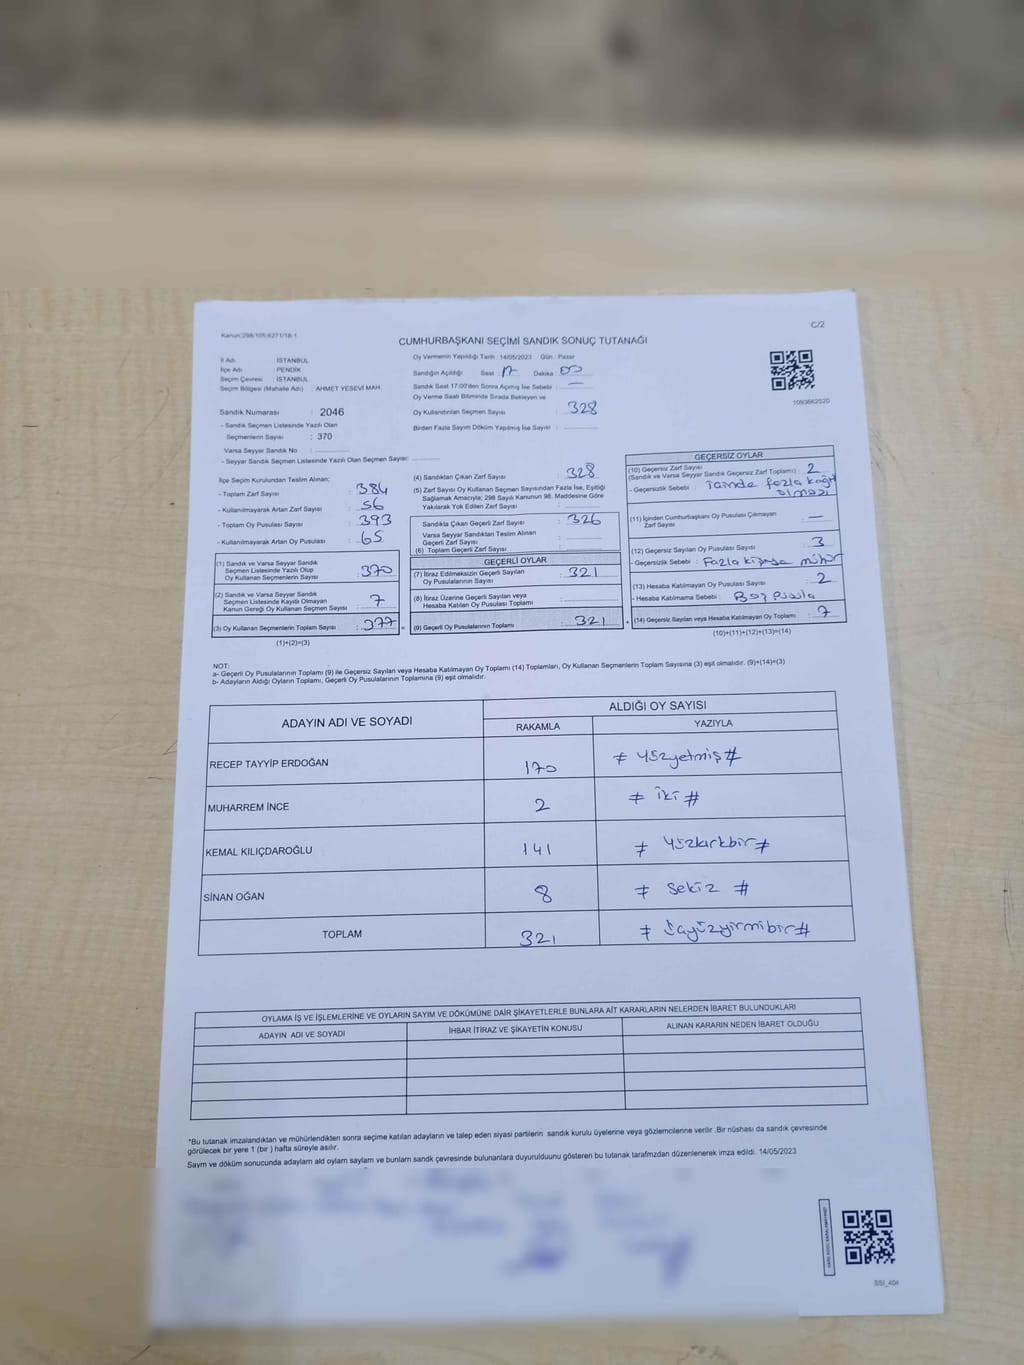 Kanun:298/105;6271/18-1
C/2
CUMHURBAŞKANI SEÇİMİ SANDIK SONUÇ TUTANAĞI
İl Adı : İSTANBUL
İlçe Adı : PENDİK
Seçim Çevresi : İSTANBUL
Seçim Bölgesi (Mahalle Adı) AHMET YESEVİ MAH.
Sandık Numarası : 2046
- Sandık Seçmen Listesinde Yazılı Olan
Seçmenlerin Sayısı : 370
Varsa Seyyar Sandık No :
- Seyyar Sandık Seçmen Listesinde Yazılı Olan Seçmen Sayısı:
Oy Vermenin Yapıldığı Tarih : 14/05/2023 Gün : Pazar
Sandığın Açıldığı Saat : 17 Dakika : 00
Sandık Saat 17:00'den Sonra Açılmış İse Sebebi : —
Oy Verme Saati Bitiminde Sırada Bekleyen ve
Oy Kullandırılan Seçmen Sayısı : 328
Birden Fazla Sayım Döküm Yapılmış İse Sayısı :
1093662520
İlçe Seçim Kurulundan Teslim Alınan:
- Toplam Zarf Sayısı : 384
- Kullanılmayarak Artan Zarf Sayısı : 56
- Toplam Oy Pusulası Sayısı : 393
- Kullanılmayarak Artan Oy Pusulası : 65
(1) Sandık ve Varsa Seyyar Sandık
Seçmen Listesinde Yazılı Olup
Oy Kullanan Seçmenlerin Sayısı : 370
(2) Sandık ve Varsa Seyyar Sandık
Seçmen Listesinde Kayıtlı Olmayan
Kanun Gereği Oy Kullanan Seçmen Sayısı : 7
(3) Oy Kullanan Seçmenlerin Toplam Sayısı : 377
(1)+(2)=(3)
(4) Sandıktan Çıkan Zarf Sayısı : 328
(5) Zarf Sayısı Oy Kullanan Seçmen Sayısından Fazla İse, Eşitliği
Sağlamak Amacıyla; 298 Sayılı Kanunun 98. Maddesine Göre
Yakılarak Yok Edilen Zarf Sayısı :
Sandıkla Çıkan Geçerli Zarf Sayısı : 326
Varsa Seyyar Sandıktan Teslim Alınan
Geçerli Zarf Sayısı :
(6) Toplam Geçerli Zarf Sayısı :
GEÇERLİ OYLAR
(7) İtiraz Edilmeksizin Geçerli Sayılan
Oy Pusulalarının Sayısı : 321
(8) İtiraz Üzerine Geçerli Sayılan veya
Hesaba Katılan Oy Pusulası Toplamı :
(9) Geçerli Oy Pusulalarının Toplamı : 321
GEÇERSİZ OYLAR
(10) Geçersiz Zarf Sayısı
(Sandık ve Varsa Seyyar Sandık Geçersiz Zarf Toplamı) : 2
- Geçersizlik Sebebi : İçinde fazla kağıt
olması
(11) İçinden Cumhurbaşkanı Oy Pusulası Çıkmayan
Zarf Sayısı : —
(12) Geçersiz Sayılan Oy Pusulası Sayısı : 3
- Geçersizlik Sebebi : Fazla kişiye mühür
(13) Hesaba Katılmayan Oy Pusulası Sayısı : 2
- Hesaba Katılmama Sebebi : Boş Pusula
(14) Geçersiz Sayılan veya Hesaba Katılmayan Oy Toplamı : 7
(10)+(11)+(12)+(13)=(14)
NOT:
a- Geçerli Oy Pusulalarının Toplamı (9) ile Geçersiz Sayılan veya Hesaba Katılmayan Oy Toplamı (14) Toplamları, Oy Kullanan Seçmenlerin Toplam Sayısına (3) eşit olmalıdır. (9)+(14)=(3)
b- Adayların Aldığı Oyların Toplamı, Geçerli Oy Pusulalarının Toplamına (9) eşit olmalıdır.
ADAYIN ADI VE SOYADI
ALDIĞI OY SAYISI
RAKAMLA YAZIYLA
RECEP TAYYİP ERDOĞAN 170 # Yüzyetmiş #
MUHARREM İNCE 2 # İki #
KEMAL KILIÇDAROĞLU 141 # Yüzkırkbir #
SİNAN OĞAN 8 # Sekiz #
TOPLAM 321 # Üçyüzyirmibir #
OYLAMA İŞ VE İŞLEMLERİNE VE OYLARIN SAYIM VE DÖKÜMÜNE DAİR ŞİKAYETLERLE BUNLARA AİT KARARLARIN NELERDEN İBARET BULUNDUKLARI
ADAYIN ADI VE SOYADI İHBAR İTİRAZ VE ŞİKAYETİN KONUSU ALINAN KARARIN NEDEN İBARET OLDUĞU
*Bu tutanak imzalandıktan ve mühürlendikten sonra seçime katılan adayların ve talep eden siyasi partilerin sandık kurulu üyelerine veya gözlemcilerine verilir .Bir nüshası da sandık çevresinde
görülecek bir yere 1 (bir ) hafta süreyle asılır.
Sayım ve döküm sonucunda adayların ald oyların sayları ve bunların sandk çevresinde bulunanlara duyurulduunu gösteren bu tutanak tarafmzdan düzenlenerek imza edildi. 14/05/2023
SSI_404